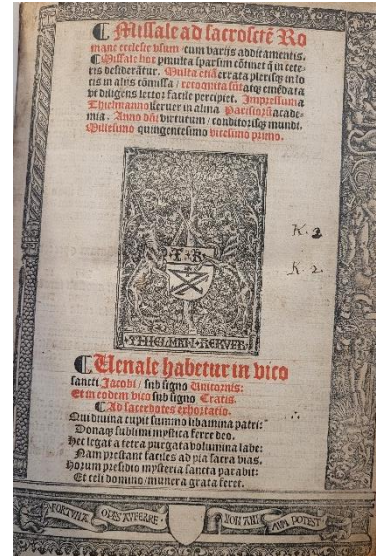 Missale ad sacroscte Ro
mane ecclesie vsum cum varijs additamentis.
Missale hoc pmulta sparsim cotinet q in cete-
ris desiderãtur. Multa etiã errata plerisq in lo
tis in alijs cõmissa / recognita sũt atq emẽdata
vt diligens lector facile percipiet. Impressum a
Thielmanno keruer in alma Parisiorũ acade-
mia. Anno dñi virtutum / conditorisq mundi.
Millesimo quingentesimo vicesimo primo.
T·K
THIELMAN·KERVER·
K. 2
K. 2.
Uenale habetur in vico
sancti Jacobi / sub signo Unicornis:
Et in eodem vico sub signo Cratis.
Ad sacerdotes exhortatio.
Qui diuina cupit summo libamina patri:
Donaq sublimi mystica ferre deo.
Hec legat a tetra purgata volumina labe:
Nam prestant faciles ad pia sacra vias.
Horum presidio mysteria sancta parabit:
Et celi domino / munera grata feret.
FORTVNA OPES AVFERRE NON ANIMVM POTEST